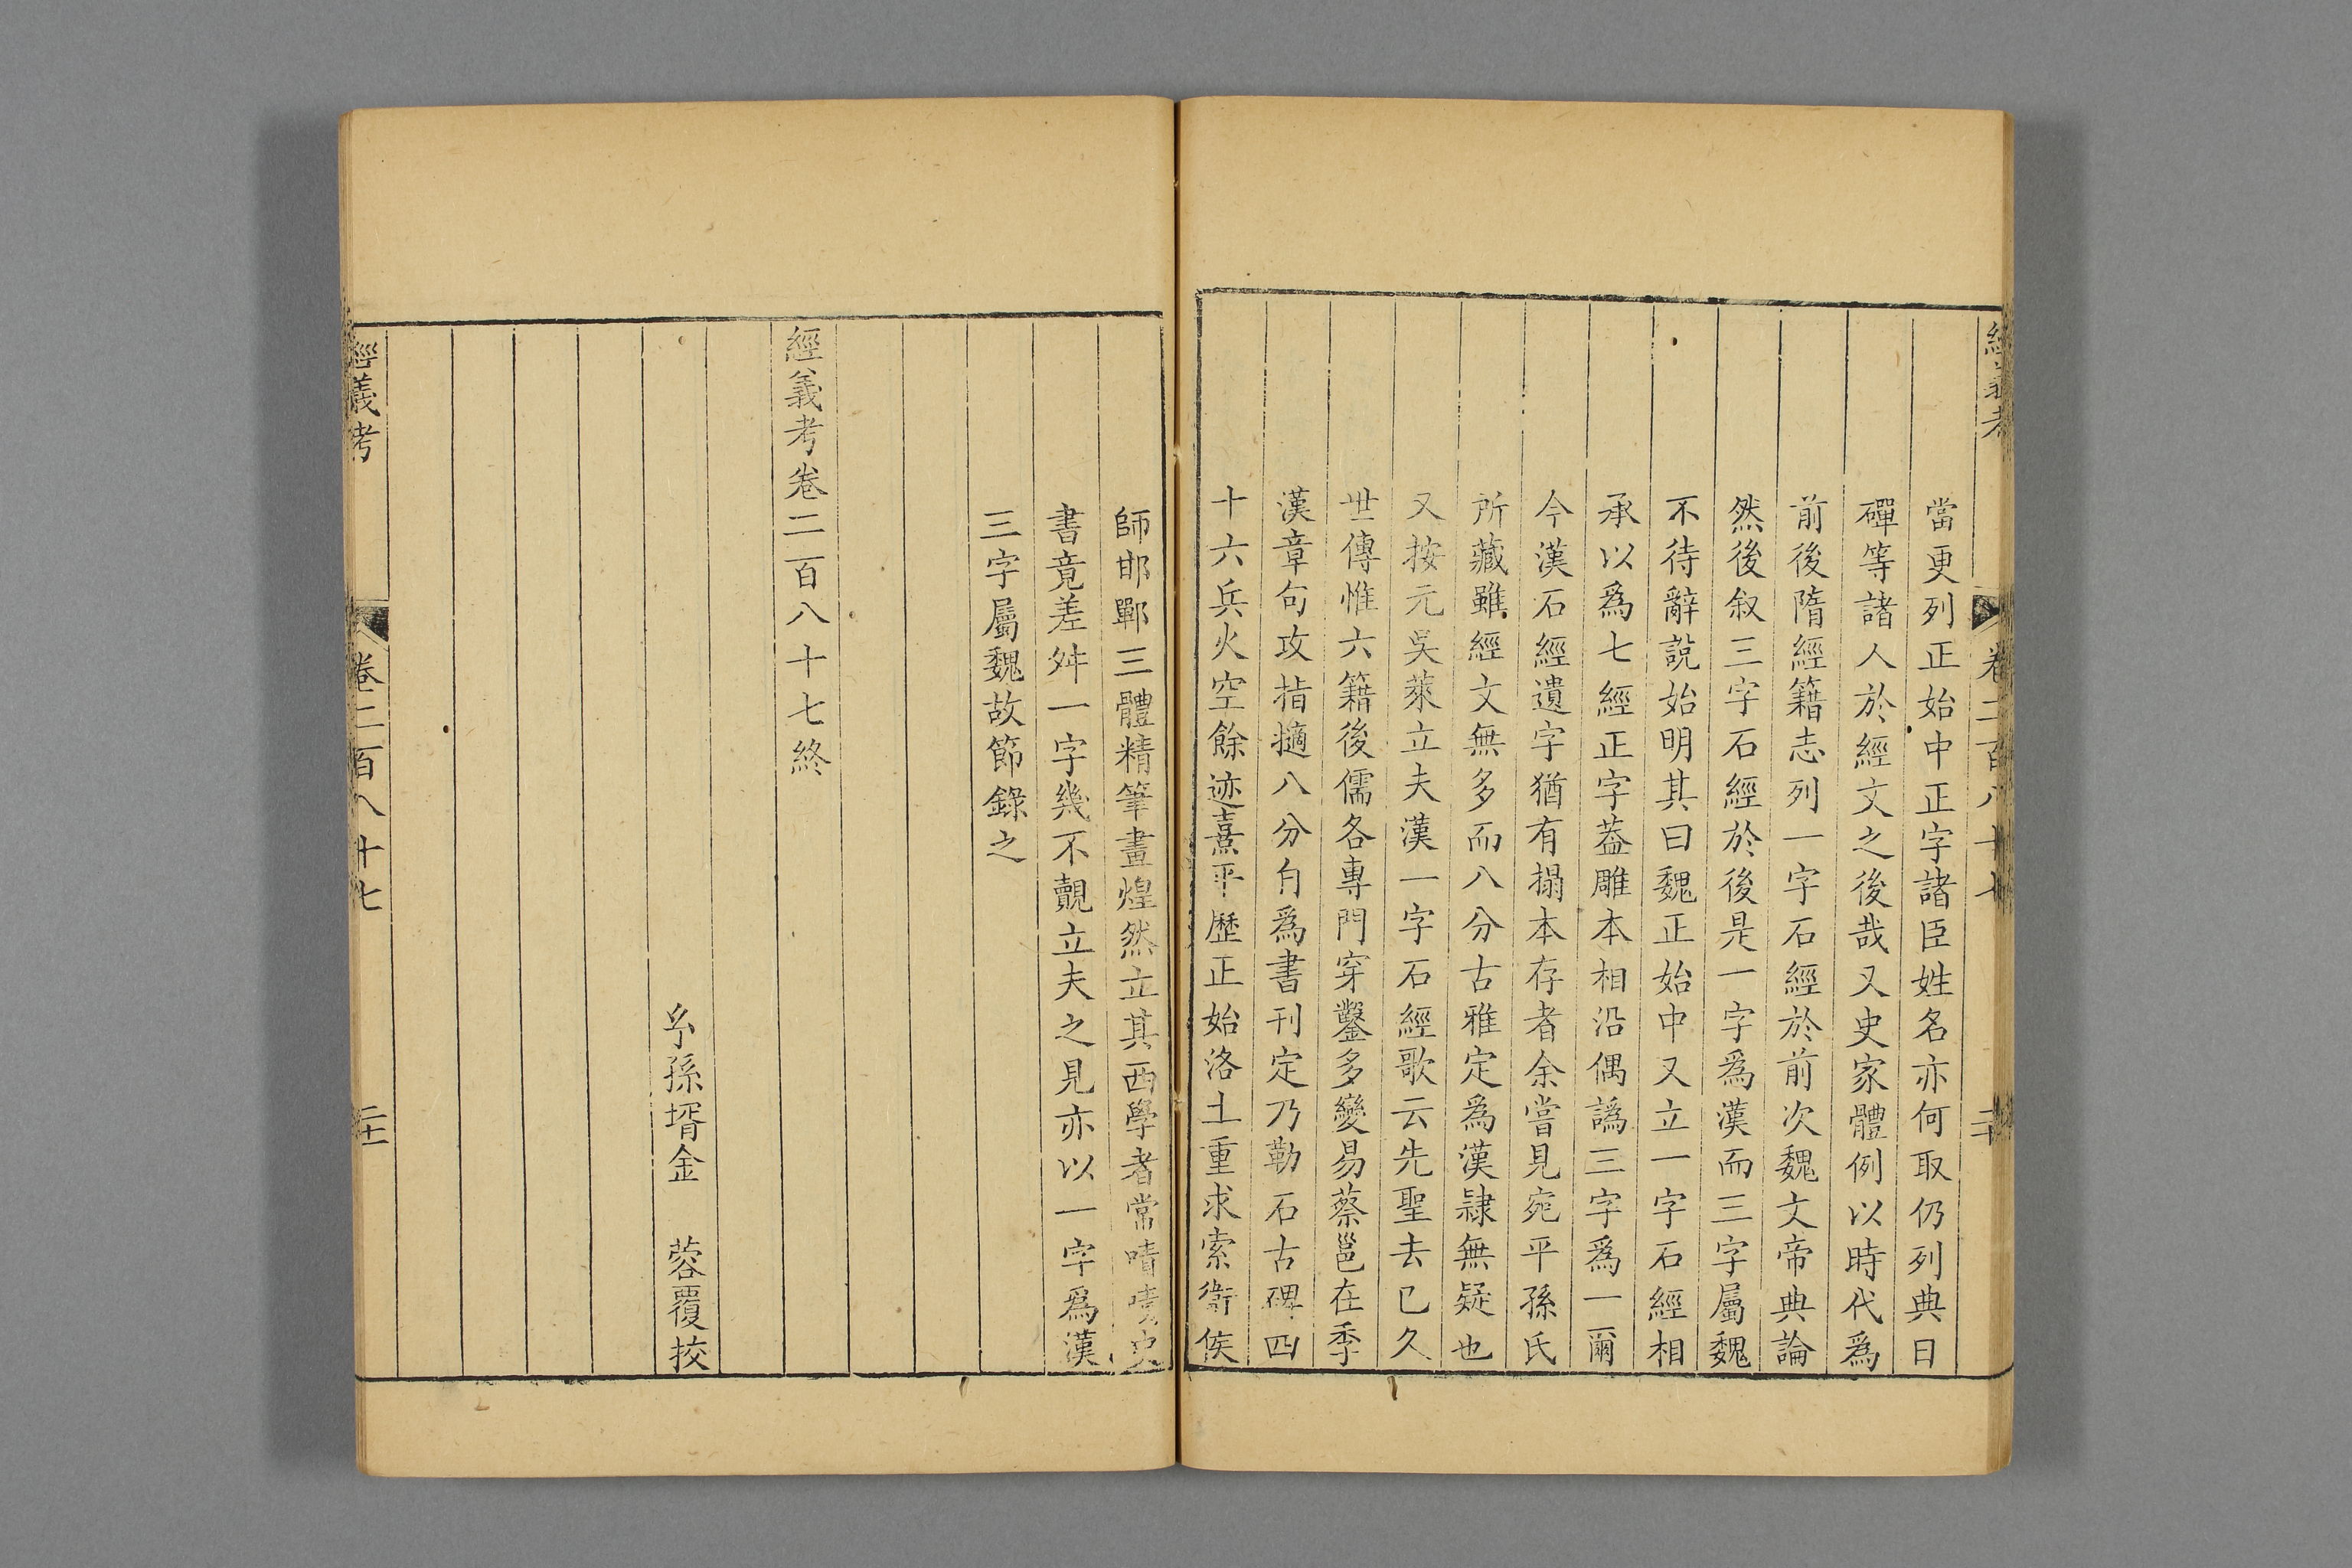 經義考
卷二百八十七
二十
當更列正始中正字諸臣姓名亦何取仍列典日
磾等諸人於經文之後哉又史家體例以時代爲
前後隋經籍志列一字石經於前次魏文帝典論
然後叙三字石經於後是一字爲漢而三字屬魏
不待辭說始明其曰魏正始中又立一字石經相
承以爲七經正字葢雕本相沿偶譌三字爲一爾
今漢石經遺字猶有搨本存者余嘗見宛平孫氏
所藏雖經文無多而八分古雅定爲漢隷無疑也
又按元吳萊立夫漢一字石經歌云先聖去已久
世傳惟六籍後儒各專門穿鑿多變易蔡邕在季
漢章句攻指擿八分自爲書刊定乃勒石古碑四
十六兵火空餘迹熹平歷正始洛土重求索衛侯
師邯鄲三體精筆畫煌然立其西學者常嘖嘖史
書竟差舛一字幾不覿立夫之見亦以一字爲漢
三字屬魏故節錄之
經義考卷二百八十七終
孫壻金 蓉覆挍
經義考
卷二百八十七
二十一